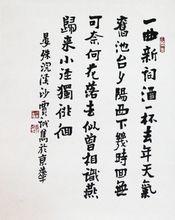 一曲新詞酒一杯去年天氣
舊池台夕陽西下幾時回無
可奈何花落去似曾相識燕
歸來小徑獨徘徊
晏殊浣溪沙 於京華